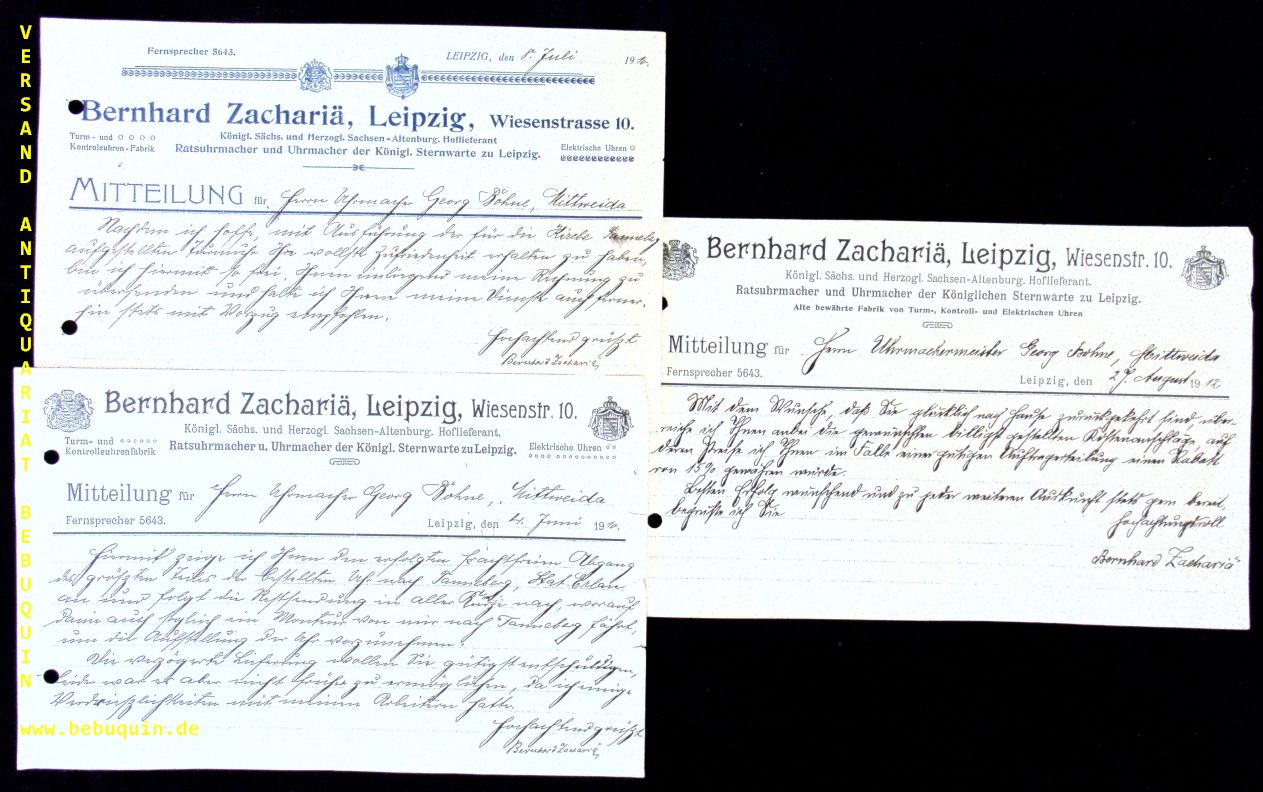 VERSAND ANTIQUARIAT BEBUQUIN
www.bebuquin.de
Fernsprecher 5643.
LEIPZIG, den 8. Juli 1910.
Bernhard Zachariä, Leipzig, Wiesenstrasse 10.
Königl. Sächs. und Herzogl. Sachsen-Altenburg. Hoflieferant
Turm- und
Kontroleuhren-Fabrik
Ratsuhrmacher und Uhrmacher der Königl. Sternwarte zu Leipzig.
Elektrische Uhren
MITTEILUNG für Herrn Uhrmacher Georg Böhne, Mittweida
Nachdem ich hoffe, mit Ausführung der für die Kirche Tanneberg
aufgestellten Turmuhr Ihre vollste Zufriedenheit erhalten zu haben,
bin ich hiermit so frei, Ihnen einliegend meine Rechnung zu
übersenden und halte ich Ihnen meine Dienste auch ferner-
hin stets mit Vorzug empfohlen.
Hochachtend grüßt
Bernhard Zachariä
Bernhard Zachariä, Leipzig, Wiesenstr. 10.
Königl. Sächs. und Herzogl. Sachsen-Altenburg. Hoflieferant.
Turm- und
Kontroleuhrenfabrik
Ratsuhrmacher u. Uhrmacher der Königl. Sternwarte zu Leipzig.
Elektrische Uhren
Mitteilung für Herrn Uhrmacher Georg Böhne, Mittweida
Fernsprecher 5643.
Leipzig, den 4. Juni 1910.
Hiermit zeige ich Ihnen den erfolgten frachtfreien Abgang
des größten Teiles der bestellten Uhr nach Tanneberg, Stat. Erlau
an und folgt die Restsendung in aller Kürze nach, worauf
dann auch sogleich ein Monteur von mir nach Tanneberg fährt,
um die Aufstellung der Uhr vorzunehmen.
Die verzögerte Lieferung wollen Sie gütigst entschuldigen,
leider war es aber nicht früher zu ermöglichen, da ich einige
Verdrießlichkeiten mit meinen Arbeitern hatte.
Hochachtend grüßt
Bernhard Zachariä
Bernhard Zachariä, Leipzig, Wiesenstr. 10.
Königl. Sächs. und Herzogl. Sachsen-Altenburg. Hoflieferant.
Ratsuhrmacher und Uhrmacher der Königlichen Sternwarte zu Leipzig.
Alte bewährte Fabrik von Turm-, Kontroll- und Elektrischen Uhren
Mitteilung für Herrn Uhrmachermeister Georg Böhne, Mittweida
Fernsprecher 5643.
Leipzig, den 27. August 1912
Mit dem Wunsche, daß Sie glücklich nach Hause zurückgekehrt sind, über-
reiche ich Ihnen anbei die gewünschten billigst gestellten Kostenanschläge, auf
deren Preise ich Ihnen im Falle einer gütigen Auftragerteilung einen Rabatt
von 15% gewähren würde.
Besten Erfolg wünschend und zu jeder weiteren Auskunft stets gern bereit,
begrüße ich Sie
Hochachtungsvoll
Bernhard Zachariä